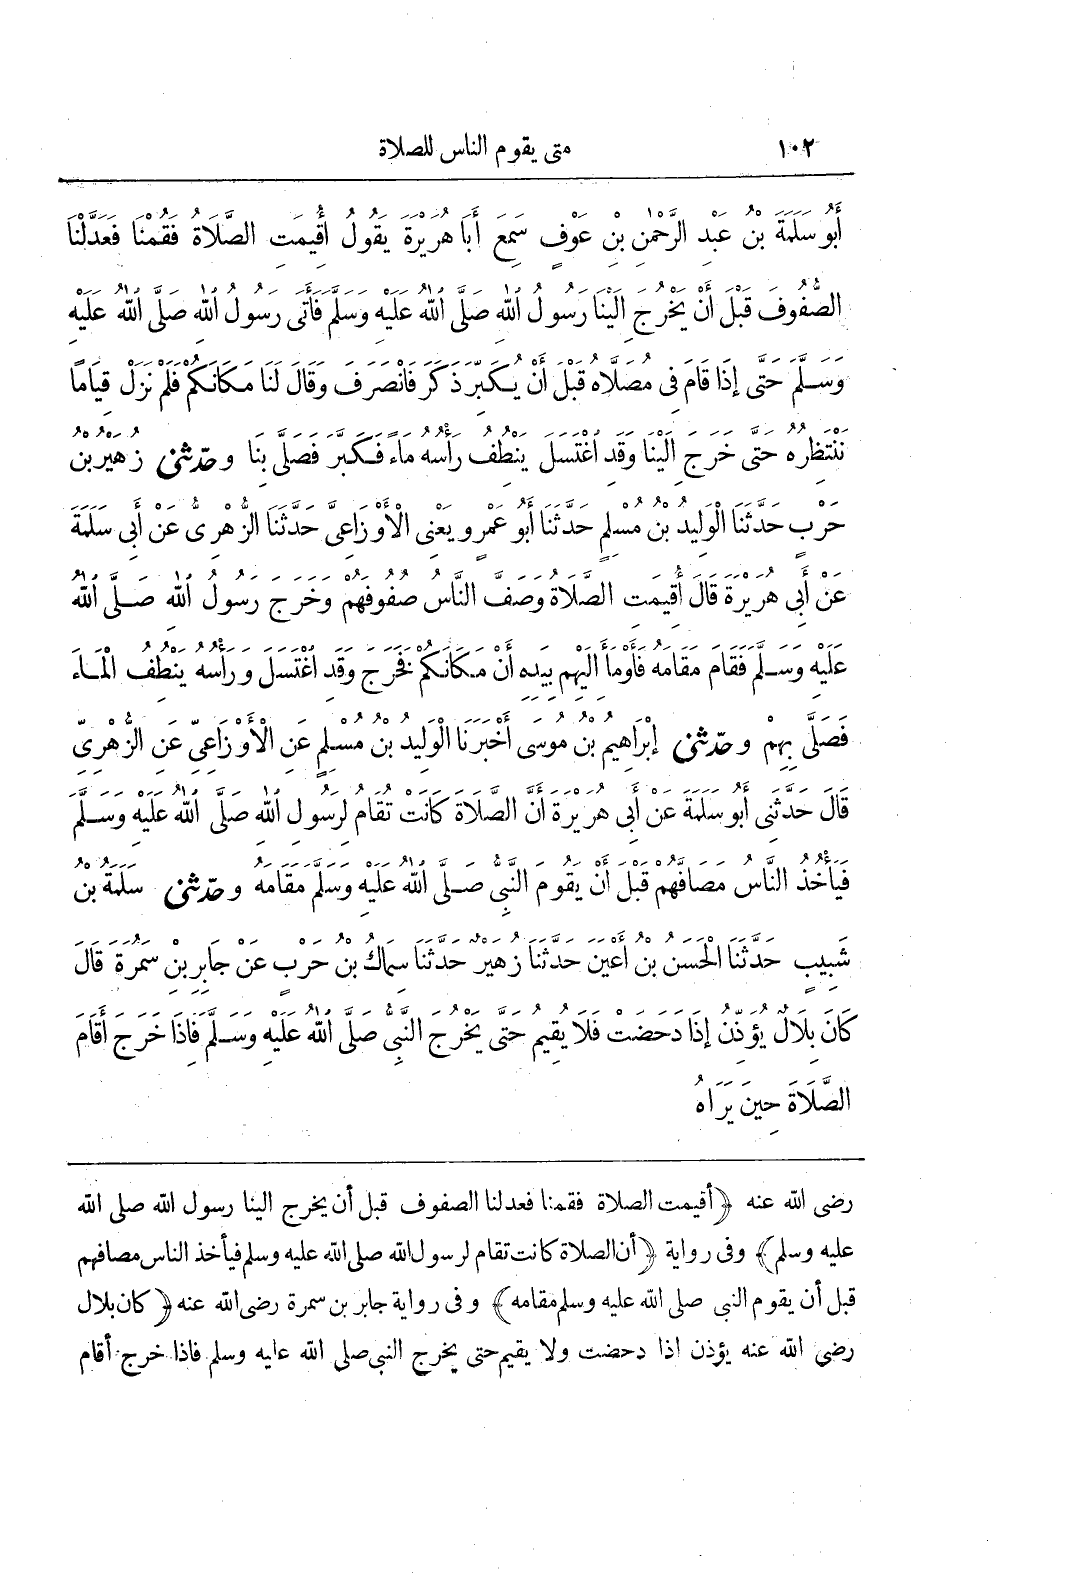 ١٠٢ متى يقوم الناس للصلاة
أَبُو سَلَمَةَ بْنُ عَبْدِ الرَّحْمٰنِ بْنِ عَوْفٍ سَمِعَ أَبَا هُرَيْرَةَ يَقُولُ أُقِيمَتِ الصَّلَاةُ فَقُمْنَا فَعَدَّلْنَا
الصُّفُوفَ قَبْلَ أَنْ يَخْرُجَ إِلَيْنَا رَسُولُ اللهِ صَلَّى اللهُ عَلَيْهِ وَسَلَّمَ فَأَتَى رَسُولُ اللهِ صَلَّى اللهُ عَلَيْهِ
وَسَلَّمَ حَتَّى إِذَا قَامَ فِى مُصَلَّاهُ قَبْلَ أَنْ يُكَبِّرَ ذَكَرَ فَانْصَرَفَ وَقَالَ لَنَا مَكَانَكُمْ فَلَمْ نَزَلْ قِيَامًا
نَنْتَظِرُهُ حَتَّى خَرَجَ إِلَيْنَا وَقَدِ اغْتَسَلَ يَنْطُفُ رَأْسُهُ مَاءً فَكَبَّرَ فَصَلَّى بِنَا وحدّثنى زُهَيْرُ بْنُ
حَرْبٍ حَدَّثَنَا الْوَلِيدُ بْنُ مُسْلِمٍ حَدَّثَنَا أَبُو عَمْرٍو يَعْنِى الْأَوْزَاعِىَّ حَدَّثَنَا الزُّهْرِىُّ عَنْ أَبِى سَلَمَةَ
عَنْ أَبِى هُرَيْرَةَ قَالَ أُقِيمَتِ الصَّلَاةُ وَصَفَّ النَّاسُ صُفُوفَهُمْ وَخَرَجَ رَسُولُ اللهِ صَلَّى اللهُ
عَلَيْهِ وَسَلَّمَ فَقَامَ مَقَامَهُ فَأَوْمَأَ إِلَيْهِمْ بِيَدِهِ أَنْ مَكَانَكُمْ فَخَرَجَ وَقَدِ اغْتَسَلَ وَرَأْسُهُ يَنْطُفُ الْمَاءَ
فَصَلَّى بِهِمْ وحدّثنى إِبْرَاهِيمُ بْنُ مُوسَى أَخْبَرَنَا الْوَلِيدُ بْنُ مُسْلِمٍ عَنِ الْأَوْزَاعِىِّ عَنِ الزُّهْرِىِّ
قَالَ حَدَّثَنِى أَبُو سَلَمَةَ عَنْ أَبِى هُرَيْرَةَ أَنَّ الصَّلَاةَ كَانَتْ تُقَامُ لِرَسُولِ اللهِ صَلَّى اللهُ عَلَيْهِ وَسَلَّمَ
فَيَأْخُذُ النَّاسُ مَصَافَّهُمْ قَبْلَ أَنْ يَقُومَ النَّبِىُّ صَلَّى اللهُ عَلَيْهِ وَسَلَّمَ مَقَامَهُ وحدّثنى سَلَمَةُ بْنُ
شَبِيبٍ حَدَّثَنَا الْحَسَنُ بْنُ أَعْيَنَ حَدَّثَنَا زُهَيْرٌ حَدَّثَنَا سِمَاكُ بْنُ حَرْبٍ عَنْ جَابِرِ بْنِ سَمُرَةَ قَالَ
كَانَ بِلَالٌ يُؤَذِّنُ إِذَا دَحَضَتْ فَلَا يُقِيمُ حَتَّى يَخْرُجَ النَّبِىُّ صَلَّى اللهُ عَلَيْهِ وَسَلَّمَ فَإِذَا خَرَجَ أَقَامَ
الصَّلَاةَ حِينَ يَرَاهُ
رضى الله عنه ﴿أقيمت الصلاة فقمنا فعدلنا الصفوف قبل أن يخرج الينا رسول الله صلى الله
عليه وسلم﴾ وفى رواية ﴿أن الصلاة كانت تقام لرسول الله صلى الله عليه وسلم فيأخذ الناس مصافهم
قبل أن يقوم النبى صلى الله عليه وسلم مقامه﴾ وفى رواية جابر بن سمرة رضى الله عنه ﴿كان بلال
رضى الله عنه يؤذن اذا دحضت ولا يقيم حتى يخرج النبى صلى الله عليه وسلم فاذا خرج أقام